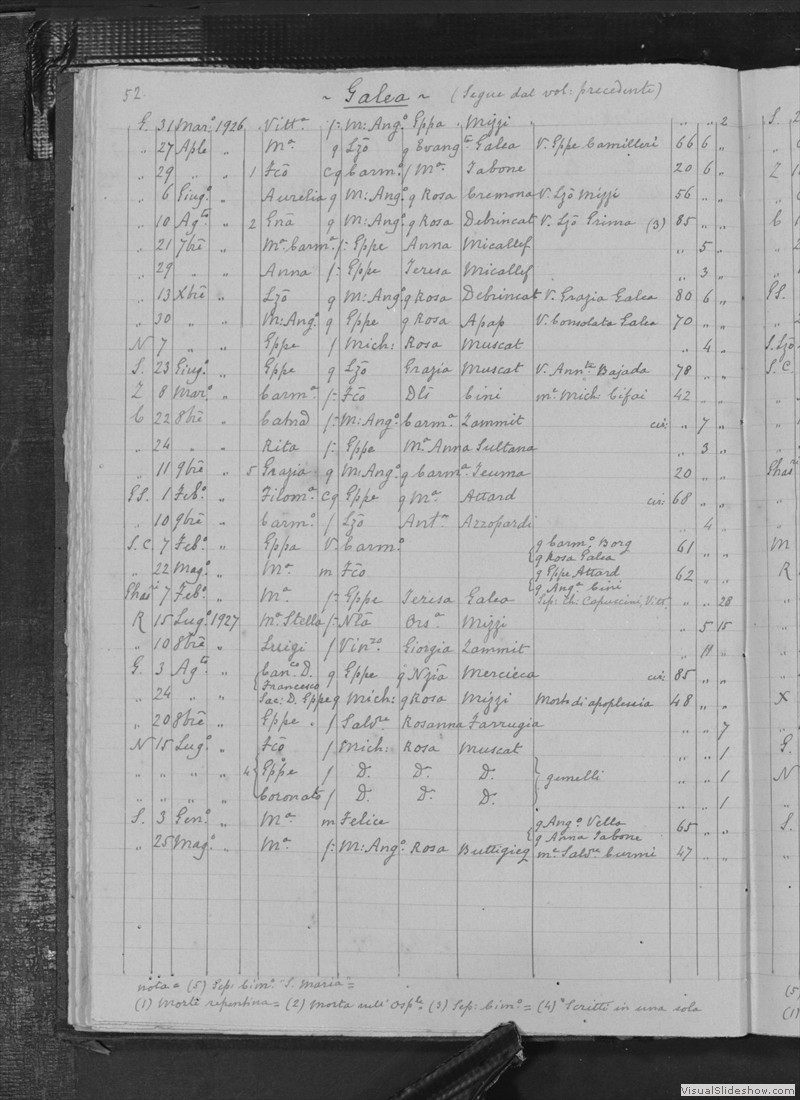 52. ~ Galea ~ (Segue dal vol: precedente)
G. 31 Mar.º 1926 Vitt.ª f: M: Ang.º Eppa . Mizzi " " 2
" 27 Aple " M.ª q Lzõ q Evang.ta Galea V. Eppe Camilleri 66 6 "
" 29 " " 1 Fcõ Cq Carm.º f M.ª Tabone 20 6 "
" 6 Giug.º " Aurelia q M: Ang.º q Rosa Cremona V. Lzõ Mizzi 56 " "
" 10 Ag.to " 2 Gnã q M: Ang.º q Rosa Debrincat V. Lzõ Grima (3) 85 " "
" 21 7bre " M.ª Carm.ª f: Eppe Anna Micallef " 5 "
" 29 " " Anna f: Eppe Teresa Micallef " 3 "
" 13 Xbre " Lzõ q M: Ang.º q Rosa Debrincat V. Grazia Galea 80 6 "
" 30 " " M: Ang.º q Eppe q Rosa Apap V. Consolata Galea 70 " "
N 7 " " Eppe f Mich: Rosa Muscat " 4 "
S. 23 Giug.º " Eppe q Lzõ Grazia Muscat V. Ann.ta Bajada 78 " "
Z 8 Mar.º " Carm.ª f: Fcõ Cini m.ª Mich: Cifai 42 " "
C 22 8bre " f: M: Ang.º Carm.ª Zammit " 7 "
" 24 " " Rita f: Eppe M.ª Anna Sultana " 3 "
" 11 9bre " 5 Grazia q M: Ang.º q Carm.ª Teuma 20 " "
SS. 1 Feb.º " Filom.ª Cq Eppe q M.ª Attard 68 " "
" 10 9bre " Carm.º f Lzõ Ant.ª Azzopardi " 4 "
S. C. 7 Feb.º " Eppa V. Carm.º { q Carm.º Borg 61 " "
q Rosa Galea
" 22 Mag.º " M.ª m Fcõ { q Eppe Attard 62 " "
q Ang.ª Cini
Ghas.ri 7 Feb.º " M.ª f: Eppe Teresa Galea Sep: ch: Capuccini, Vitt. " " 28
R 15 Lug.º 1927 M.ª Stella f: Ntã Ors.ª Mizzi " 5 15
" 10 8bre " Luigi f Vin.zo Giorgia Zammit " 11 "
G. 3 Ag.to " { Can.co D. q Eppe q Nzia Mercieca 85 " "
Francesco
" 24 " " Sac: D. Eppe q Mich: q Rosa Mizzi Morto di apoplessia 48 " "
" 20 8bre " Eppe . f Salv.re Rosanna Farrugia " " 7
N 15 Lug.º " Fcõ f Mich: Rosa Muscat " " 1
" " " " 4 { Eppe f D. D. D. } gemelli " " 1
Coronato f D. D. D. " " 1
S. 3 Gen.º " M.ª m Felice { q Ang.º Vella 65 " "
q Anna Tabone
" 25 Mag.º " M.ª f: M: Ang.º Rosa Buttigieg m.ª Salv.re Curmi 47 " "
nota = (5) Sep: Cim.º "S. Maria" =
(1) Morte repentina = (2) Morta nell' Osp.le = (3) Sep: Cim.º = (4) Scritti in una sola
VisualSlideshow.com